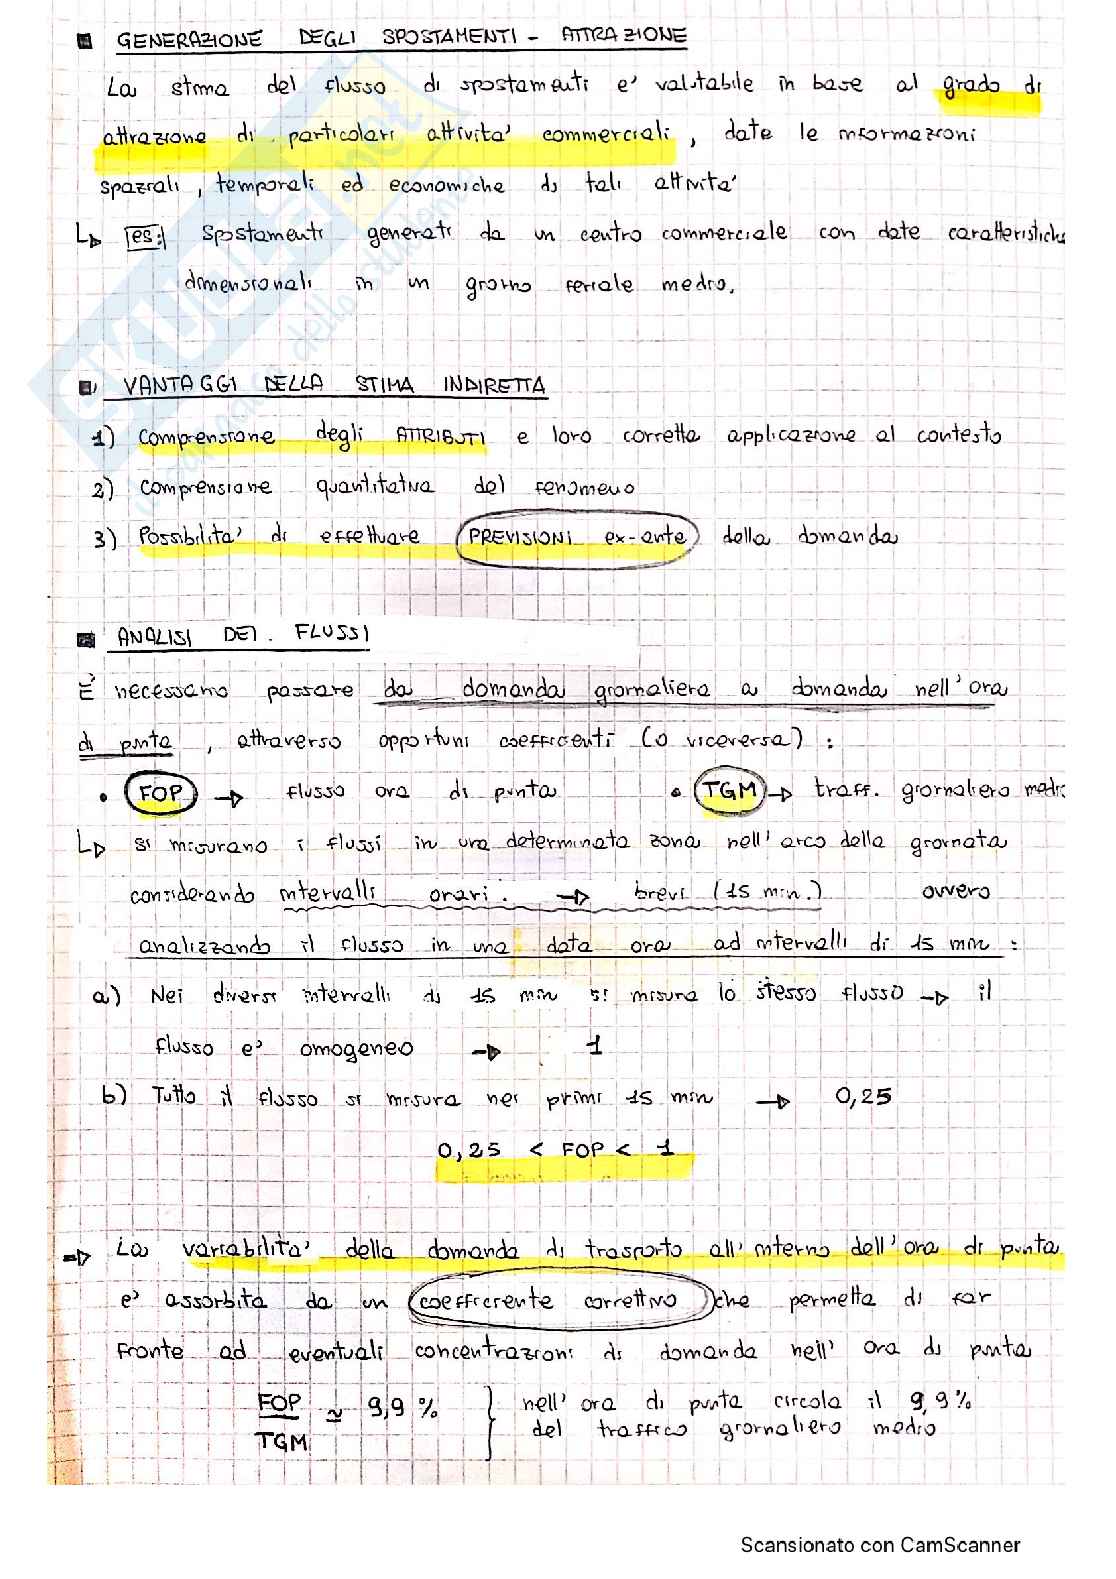 GENERAZIONE DEGLI SPOSTAMENTI - ATTRAZIONE
La stima del flusso di spostamenti e' valutabile in base al grado di
attrazione di particolari attivita' commerciali, date le informazioni
spaziali, temporali ed economiche di tali attivita'
es: Spostamenti generati da un centro commerciale con date caratteristiche
dimensionali in un giorno feriale medio.
VANTAGGI DELLA STIMA INDIRETTA
1) Comprensione degli ATTRIBUTI e loro corretta applicazione al contesto
2) Comprensione quantitativa del fenomeno
3) Possibilita' di effettuare PREVISIONI ex-ante della domanda
ANALISI DEI FLUSSI
E' necessario passare da domanda giornaliera a domanda nell'ora
di punta, attraverso opportuni coefficienti (o viceversa):
• FOP → flusso ora di punta • TGM → traff. giornaliero medio
si misurano i flussi in una determinata zona nell'arco della giornata
considerando intervalli orari. → brevi (15 min.) ovvero
analizzando il flusso in una data ora ad intervalli di 15 min:
a) Nei diversi intervalli di 15 min si misura lo stesso flusso → il
flusso e' omogeneo → 1
b) Tutto il flusso si misura nei primi 15 min → 0,25
0,25 < FOP < 1
→ La variabilita' della domanda di trasporto all'interno dell'ora di punta
e' assorbita da un coefficiente correttivo che permetta di far
fronte ad eventuali concentrazioni di domanda nell'ora di punta
FOP/TGM ≃ 9,9% } nell'ora di punta circola il 9,9%
del traffico giornaliero medio
Scansionato con CamScanner